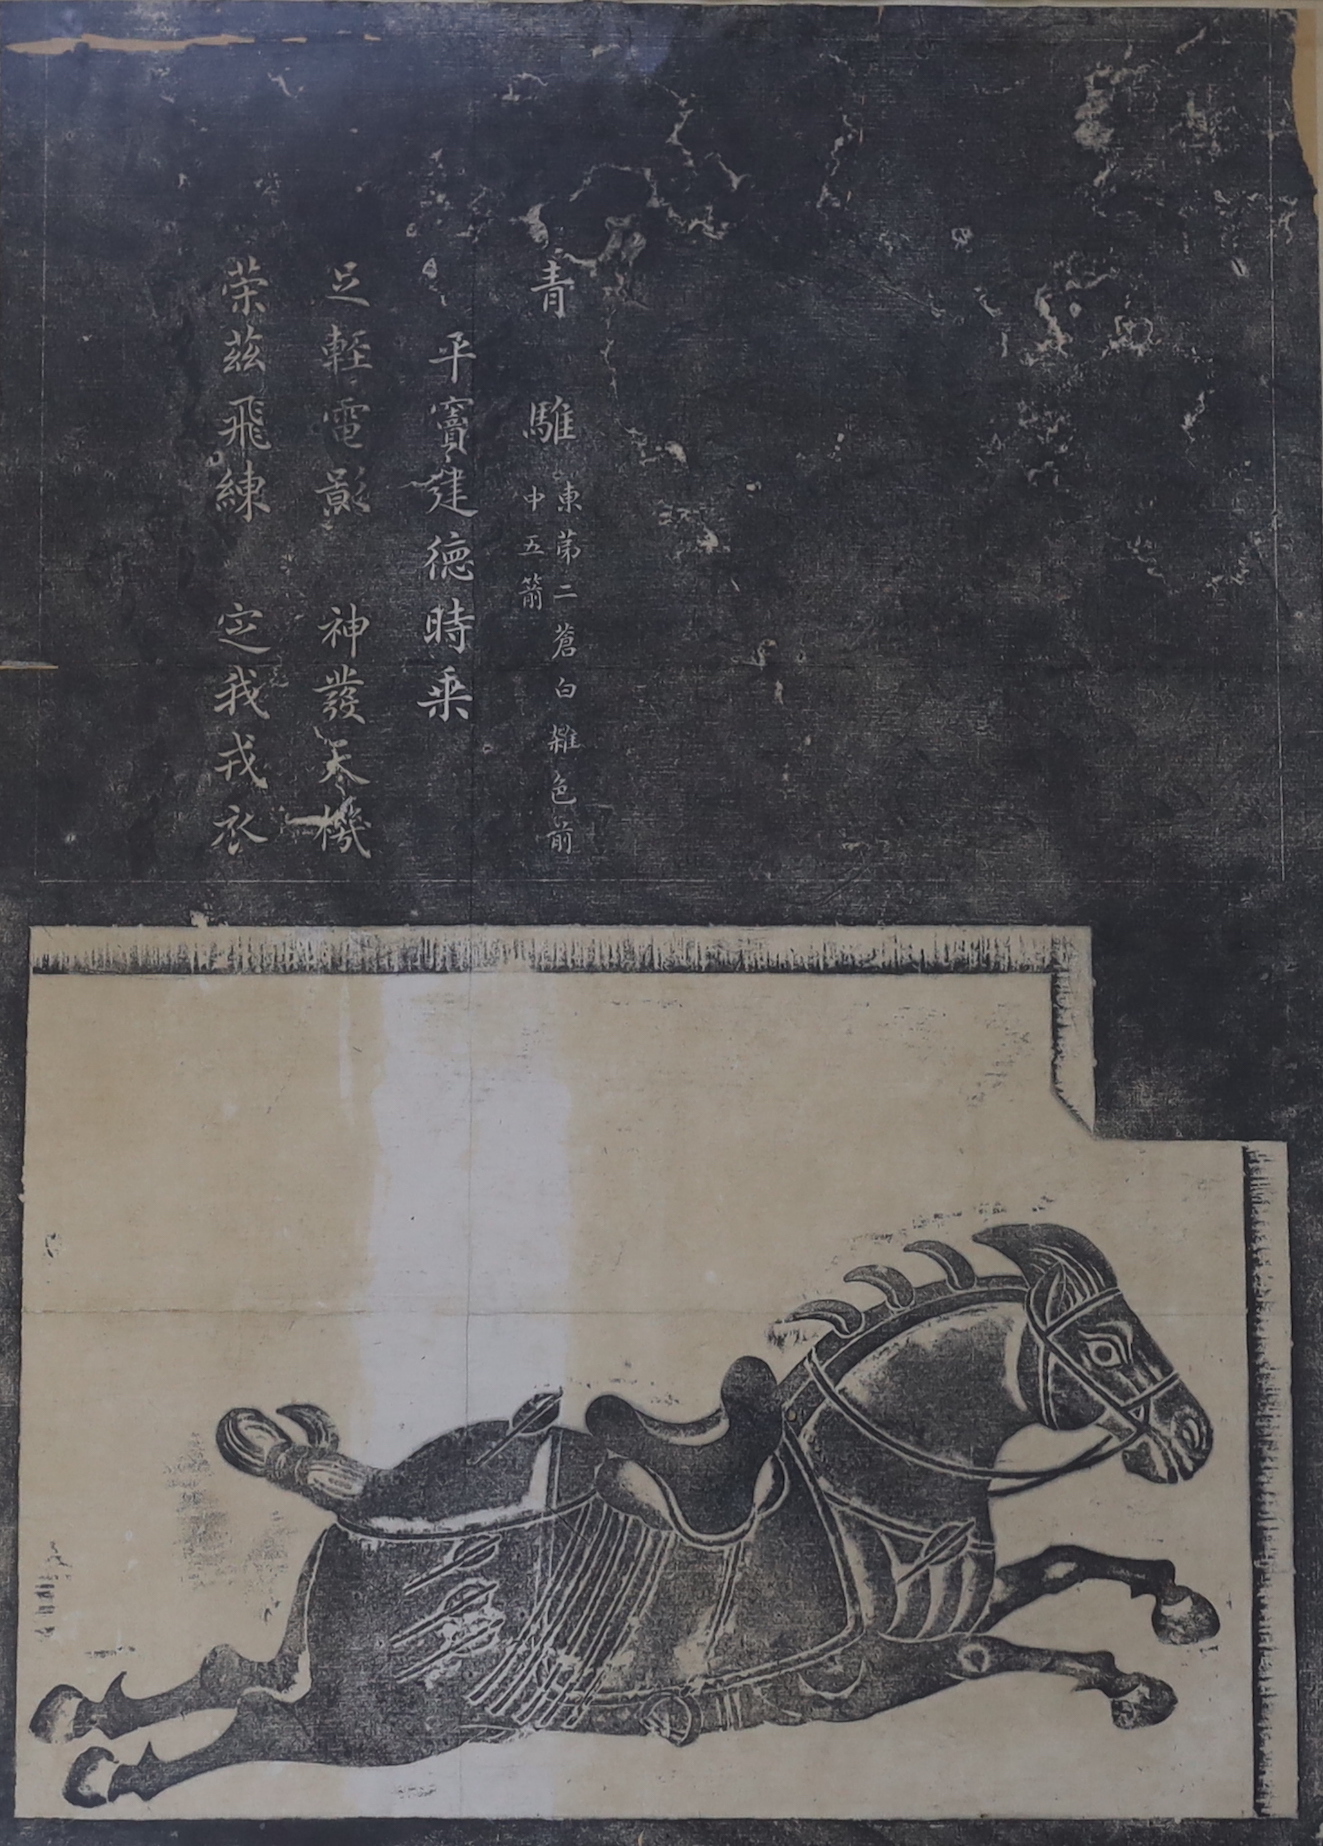 青騅
東苐二蒼白雜色前
中五箭
平竇建德時乘
足輕電影 神發天機
荣茲飛練 定我戎衣